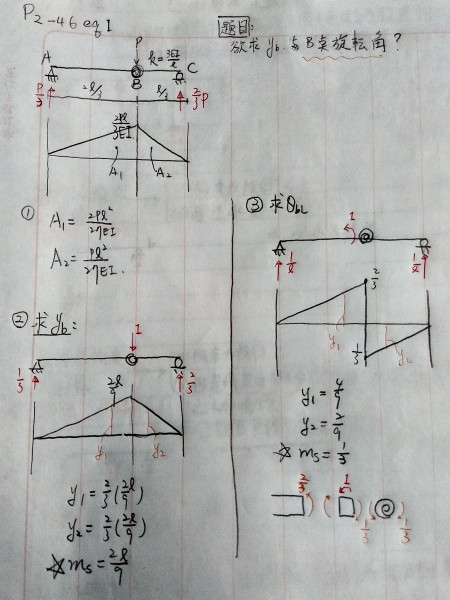 P2-46 eq I
題目:
欲求 yb 与 B 桌旋転角?
P
k = 3EI/l
A
B
C
2l/3
l/3
P/3
2/3P
2Pl/3EI
A1
A2
① A1 = 2Pl²/27EI
A2 = Pl²/27EI.
② 求 yb:
1
1/3
2/3
2l/9
y1
y2
y1 = 2/3(2l/9)
y2 = 2/3(2l/9)
☆ ms = 2l/9
③ 求 θbL
1
1/l
1/l
2/3
1/3
y1
y2
y1 = 4/9
y2 = 2/9
☆ ms = 1/3
2/3
1
1/3
1/3